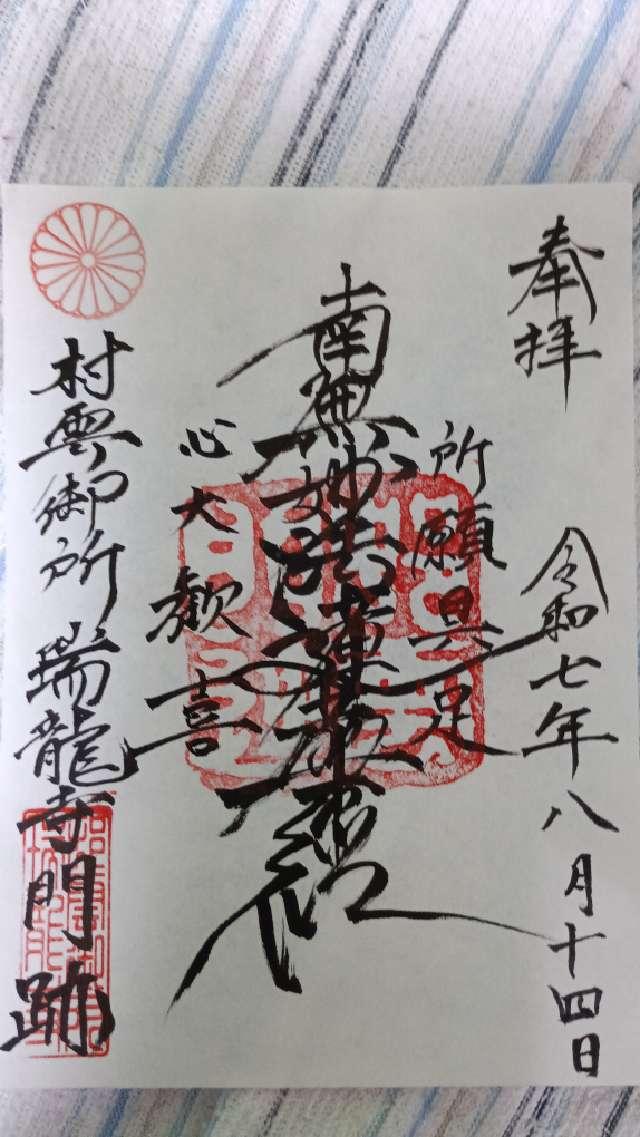 奉拝
令和七年八月十四日
所願具足
南無妙法蓮華経
心大歓喜
村雲御所 瑞龍寺門跡